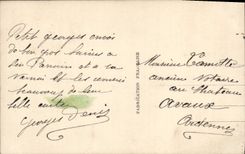 Petit georges envoi
de bon gros baisers a
son Parrain et a sa
et les remerci
beaucoup de leur
belle carte
Georges Denis
FABRICATION FRANÇAISE
Monsieur Camille
ancien Notaire
au Chateau
Avaux
Ardennes